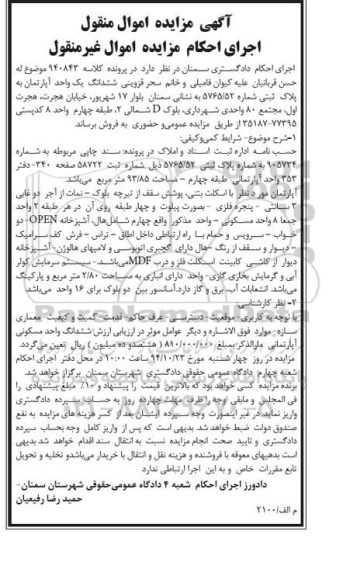 آگهی مزایده اموال منقول
اجرای احکام مزایده اموال غیرمنقول
اجرای احکام دادگستری سمنان در نظر دارد در پرونده کلاسه ۹۴۰۸۴۳ موضوع له
حسن قربانیان علیه کیوان فامیلی و خانم سحر قزوینی ششدانگ یک واحد آپارتمان به
پلاک ثبتی ۵۷۶۵/۵۲ به نشانی سمنان بلوار ۱۷ شهریور، خیابان هجرت، هجرت
اول، مجتمع ۸۰ واحدی شهرداری، بلوک D شمالی ۲، طبقه چهارم واحد ۸ کدپستی
۳۵۱۸۷-۷۷۳۹۵ از طریق مزایده عمومی و حضوری به فروش برساند.
۱-شرح موضوع- شرایط کمی و کیفی:
حسب نامه اداره ثبت اسناد و املاک در پرونده: سند چاپی مربوطه به شماره
۹۰۵۷۳۴ به شماره پلاک ثبتی ۵۷۶۵/۵۲ ذیل شماره ثبت ۵۸۷۲۲ صفحه ۳۴۰- دفتر
۳۵۳ واحد آپارتمانی طبقه چهارم – مساحت ۹۳/۸۵ متر مربع می‌باشد.
آپارتمان مورد نظر با اسکلت بتنی، پوشش سقف از تیرچه بلوک – نمات از آجر دوغابی
۲ سانتی – پنجره فلزی – بصورت پیلوت و چهار طبقه روی آن در هر طبقه ۲ واحد
جمعا ۸ واحد مسکونی – واحد مذکور واقع چهارم شامل هال، آشپزخانه OPEN - دو
خواب – سرویس و حمام با راه ارتباطی داخل اطاق – تراس – فرش کف سرامیک
– دیوار و سقف از رنگ – هال دارای گچبری اتوپوسی و لامپهای هالوژن- آشپزخانه
دیوار از کاشی کابینت اسکلت فلز و درب MDF می‌باشد- سیستم سرمایش کولر
آبی و گرمایش بخاری گازی- واحد دارای انباری به مساحت ۲/۸۰ متر مربع و پارکینگ
می‌باشد. انشعابات آب، برق و گاز دارد. آسانسور بین دو بلوک برای ۱۶ واحد می‌باشد.
۲- نظر کارشناسی
با توجه به کاربری- موقعیت – دسترسی – عرف حاکم – قدمت – کمیت و کیفیت – معماری
سازه- موارد فوق الاشاره و دیگر عوامل موثر در ارزیابی ارزش ششدانگ واحد مسکونی
آپارتمانی مارالذکر بمبلغ ۸۱۰/۰۰۰/۰۰۰ (هشتصد و ده میلیون) ریال تعین می‌گردد.
مزایده در روز چهارشنبه مورخ ۹۴/۱۰/۲۳ ساعت ۱۰:۰۰ در محل دفتر اجرای احکام
شعبه چهارم دادگاه عمومی حقوقی دادگستری شهرستان سمنان برگزار خواهد شد.
برنده مزایده کسی خواهد بود که بالاترین قیمت را پیشنهاد و ۱۰٪ مبلغ پیشنهادی را
فی المجلس و مابقی وجه را ظرف مهلت چهارده روز به حساب سپرده دادگستری
واریز نماید در غیر اینصورت وجه سپرده ایشان بعد از کسر هزینه های مزایده به نفع
صندوق دولت ضبط خواهد شد. بدیهی است که پس از واریز کامل وجه بحساب سپرده
دادگستری و تایید صحت انجام مزایده نسبت به انتقال سند اقدام خواهد شد بدیهی
است بدهیهای معوقه با فروشنده و هزینه نقل و انتقال با خریدار می‌باشد و تخلیه و تحویل
تابع مقررات خاص و به این اجرا ارتباطی ندارد
دادورز اجرای احکام شعبه ۴ دادگاه عمومی حقوقی شهرستان سمنان-
حمید رضا رفیعیان
م الف/۲۱۰۰